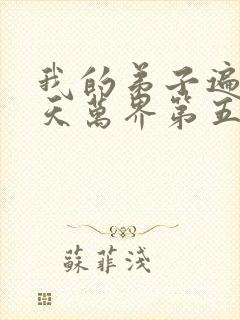 我的弟子遍
天萬界第五
蘇菲淺